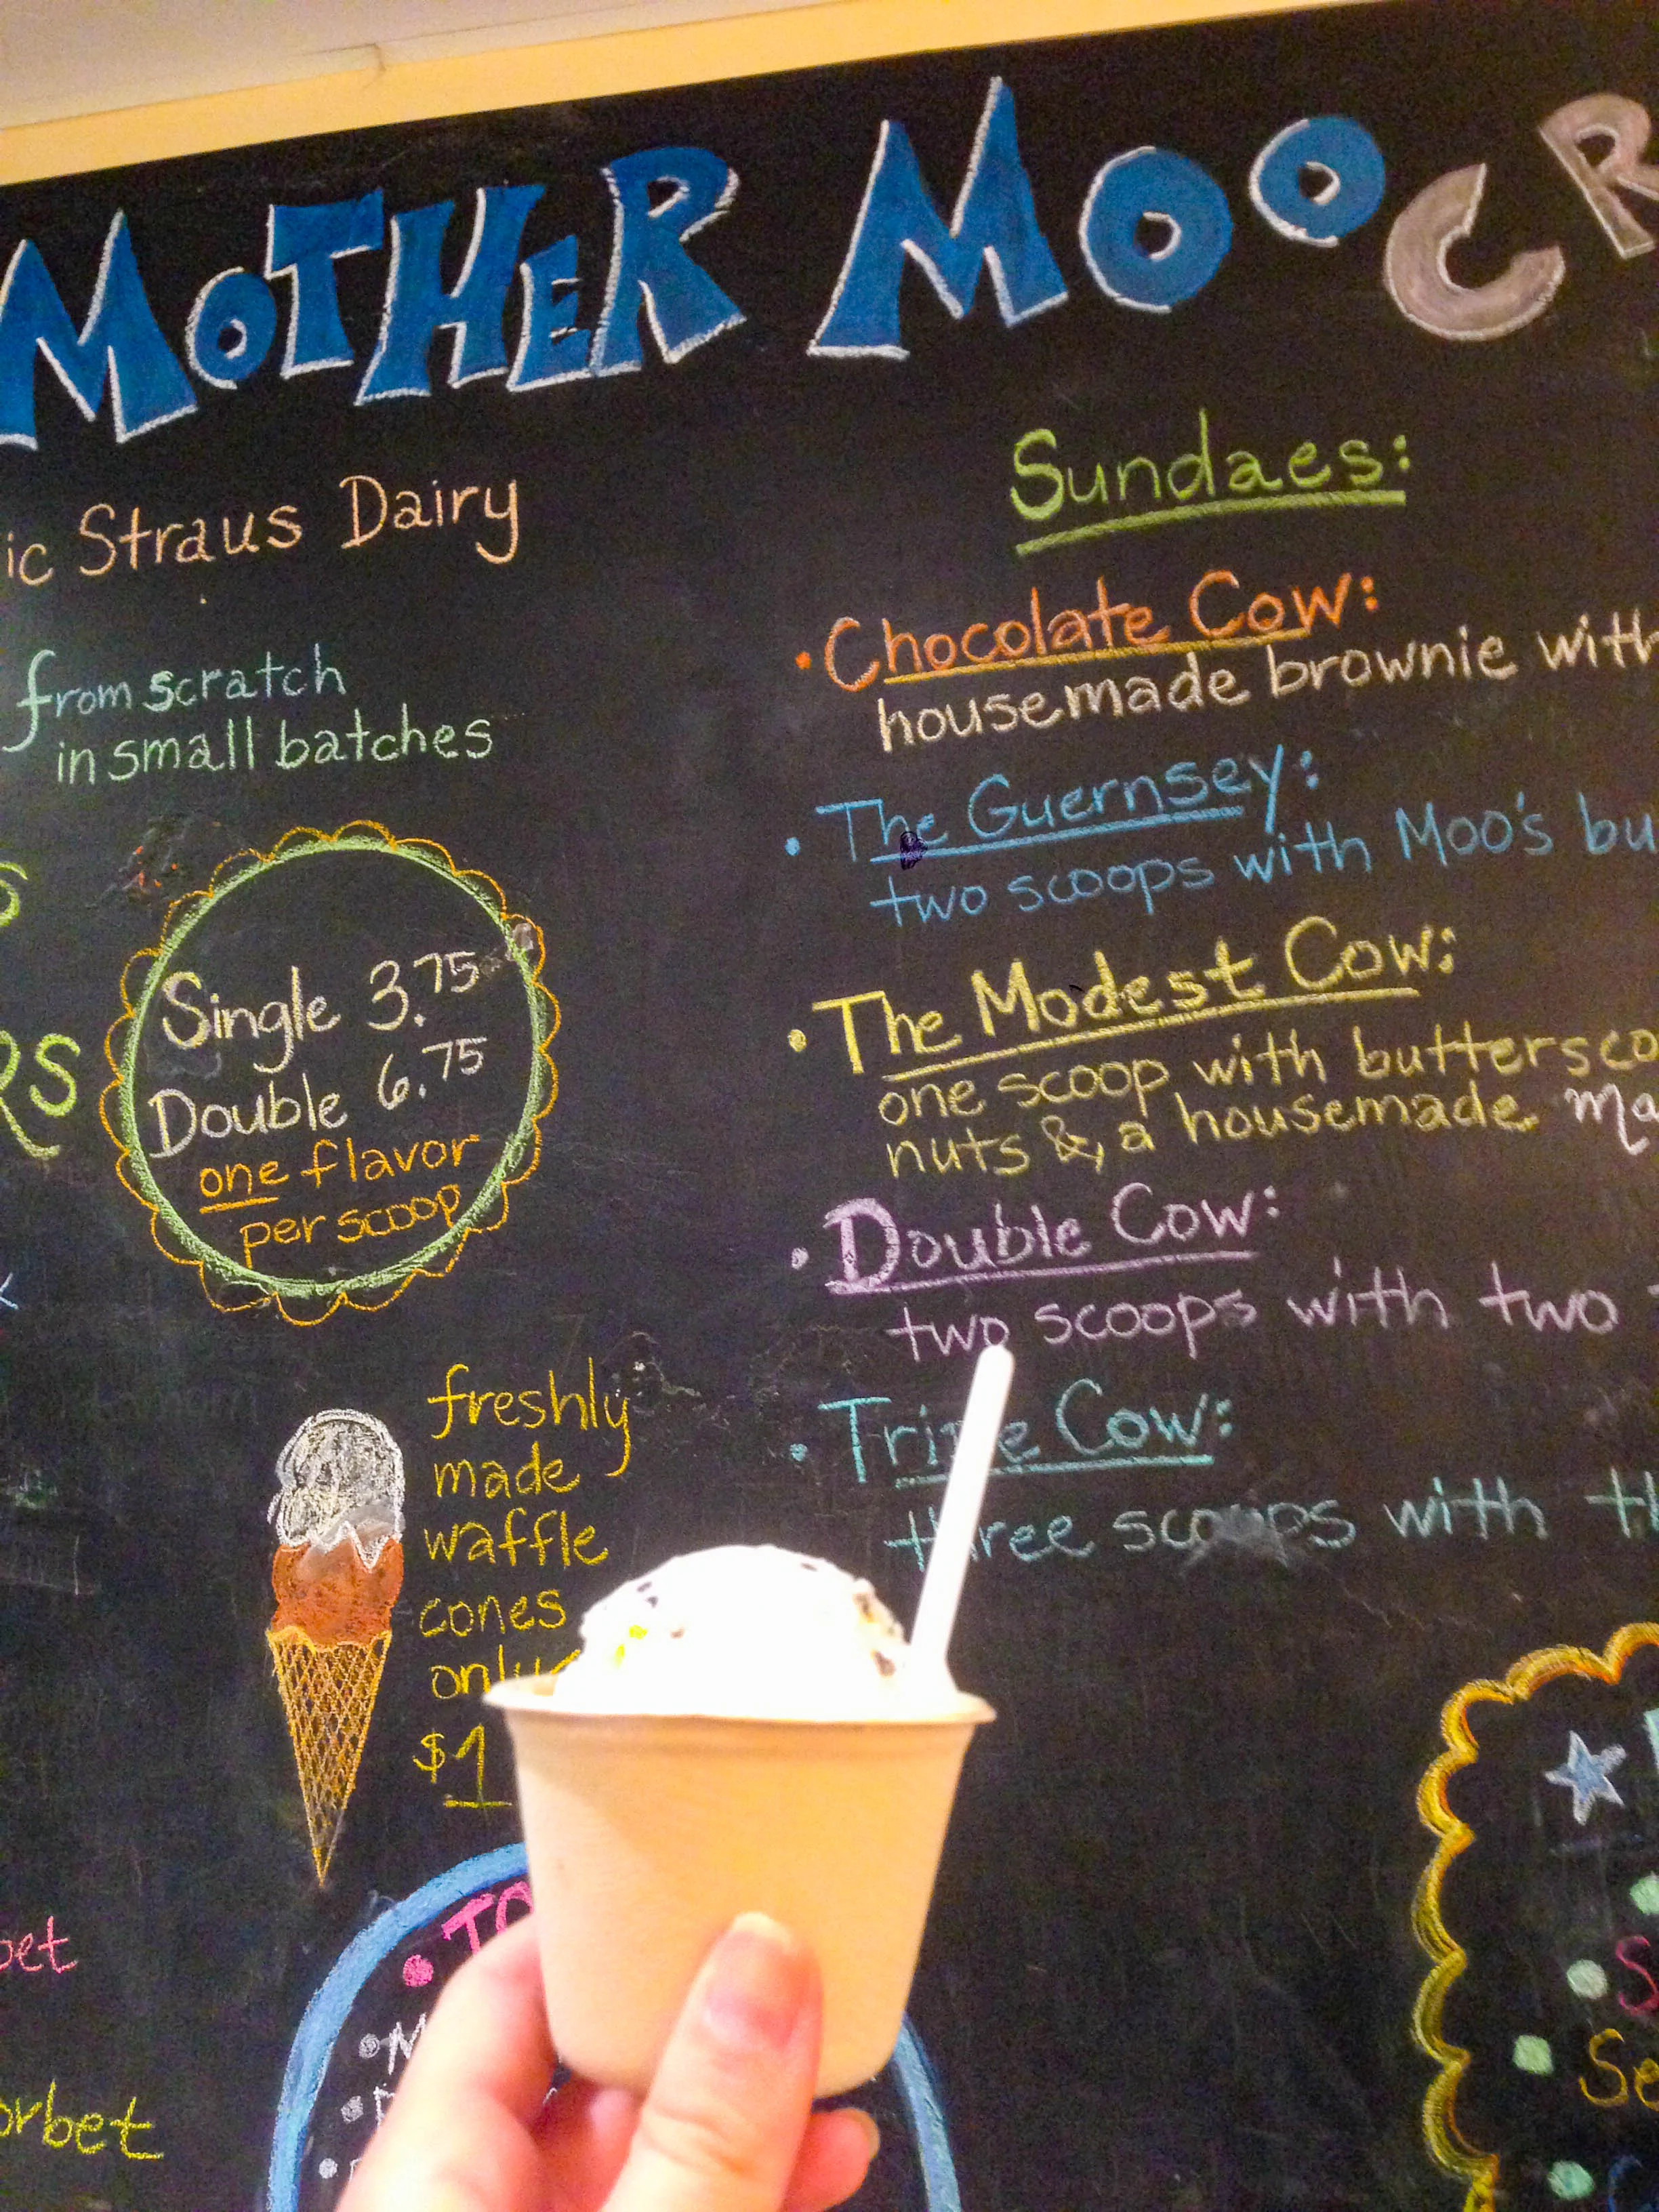 MOTHER MOO CR
ic Straus Dairy
from scratch
in small batches
S
RS
Single 3.75
Double 6.75
one flavor
per scoop
freshly
made
waffle
cones
only
$1
bet
orbet
Sundaes:
• Chocolate Cow:
housemade brownie with
• The Guernsey:
two scoops with Moo's bu
• The Modest Cow:
one scoop with buttersco
nuts & a housemade ma
• Double Cow:
two scoops with two
• Triple Cow:
three scoops with th
• TO
• M
S
Se